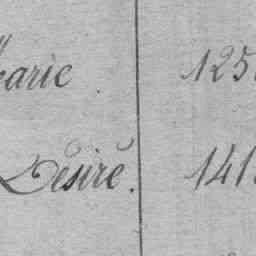 Marie 125
Désiré. 141